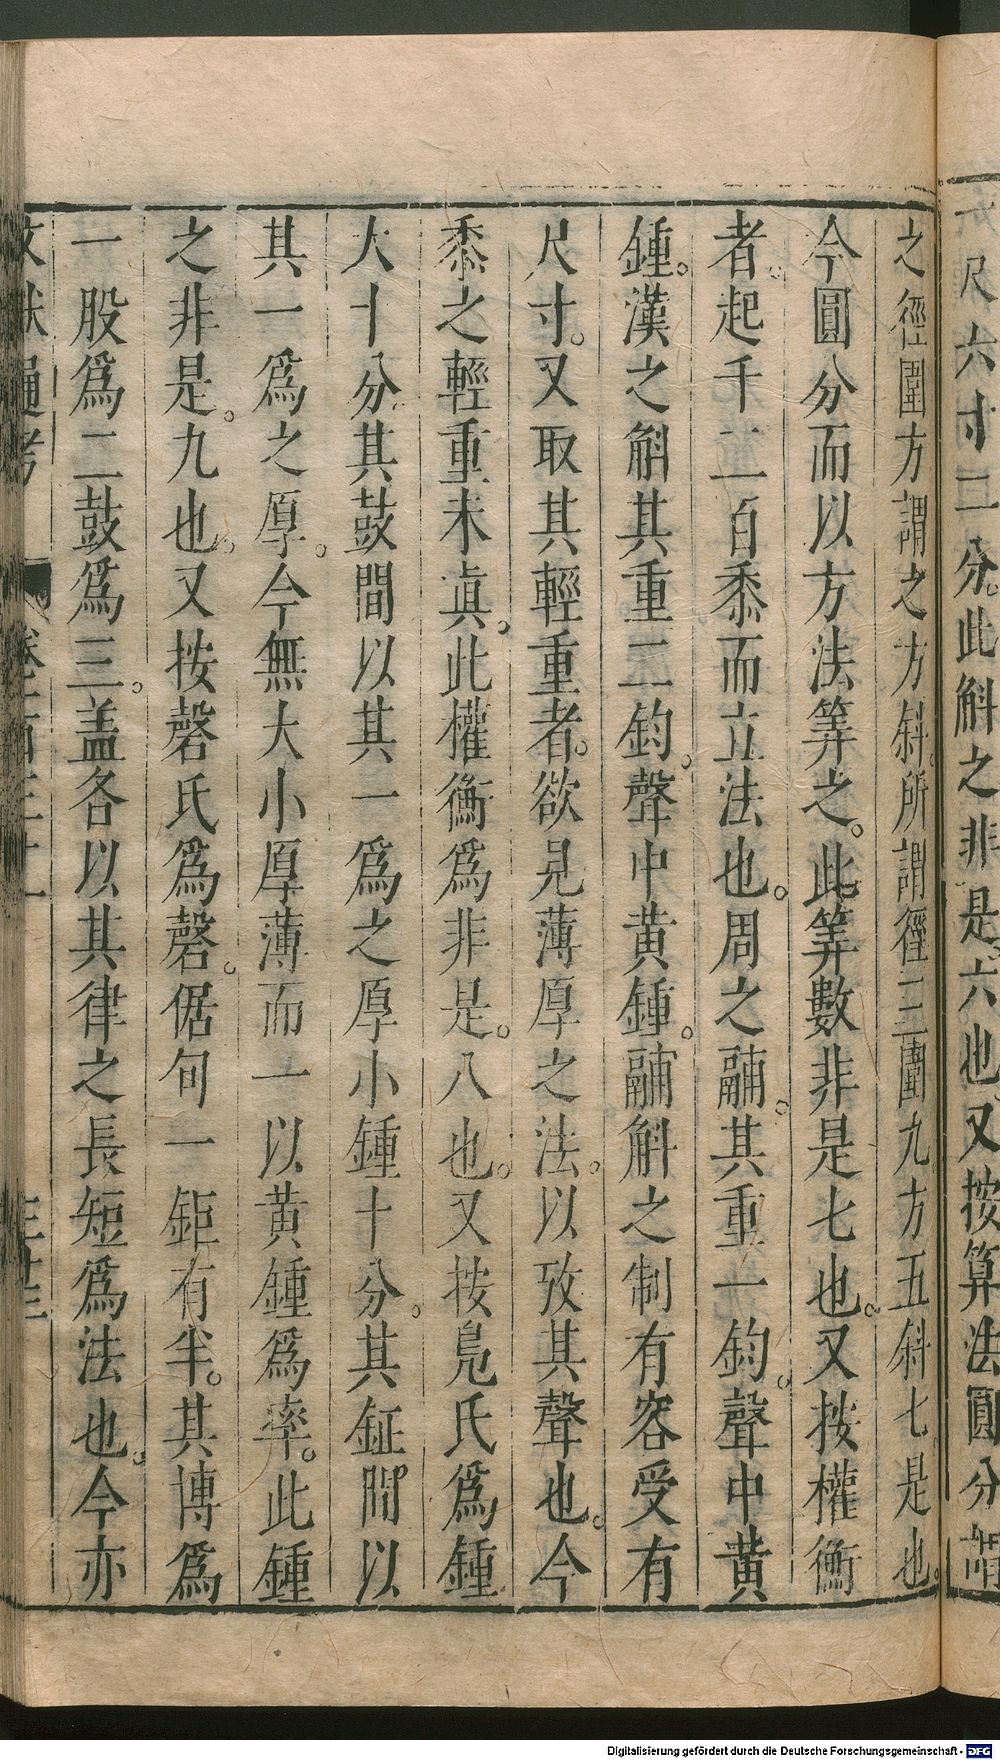 一尺六寸二分。此斛之非是六也。又按算法圓分謂
之徑圍方謂之方斜。所謂徑三圍九方五斜七是也。
今圓分而以方法筭之。此筭數非是七也。又按權衡
者。起千二百黍而立法也。周之鬴。其重一鈞。聲中黄
鍾。漢之斛其重二鈞。聲中黄鍾。鬴斛之制有容受有
尺寸。又取其輕重者。欲見薄厚之法。以攷其聲也。今
黍之輕重未真。此權衡爲非是。八也。又按鳧氏爲鍾
大十分其鼓間以其一爲之厚小鍾十分。其鉦間以
其一爲之厚。今無大小厚薄而一以黄鍾爲率。此鍾
之非是。九也。又按磬氏爲磬。倨句一鉅有半。其博爲
一股爲二鼓爲三。盖各以其律之長短爲法也。今亦
文獻通考
卷
Digitalisierung gefördert durch die Deutsche Forschungsgemeinschaft - DFG